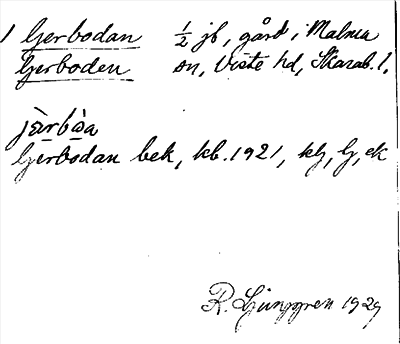 1 Gerbodan ½ jb, gård i Malma
Gerboden sn, Viste hd, Skarab. l.
jä̀rbòa
Gerbodan bek, kb. 1921, klj, lj, ek
R. Ljunggren 1929